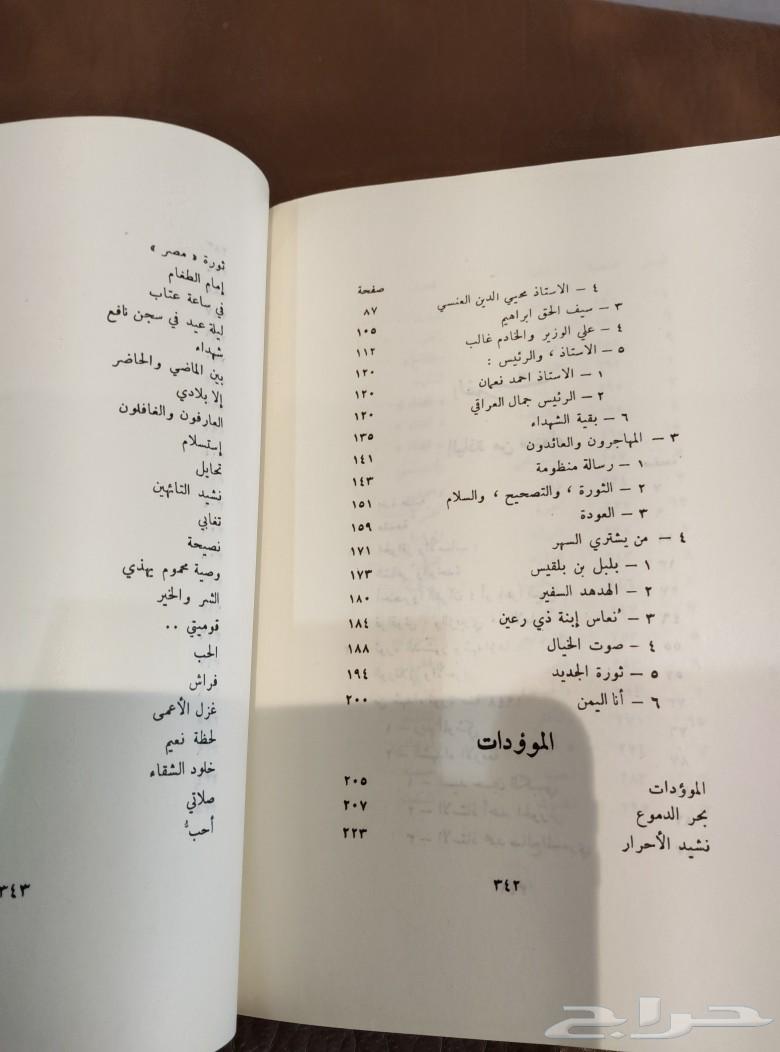 صفحة
٤ – الاستاذ محيي الدين العنسي ٨٧
٣ – سيف الحق ابراهيم ١٠٥
٤ – علي الوزير والخادم غالب ١١٢
٥ – الاستاذ ، والرئيس : ١٢٠
١ – الاستاذ احمد نعمان ١٢٠
٢ – الرئيس جمال العراقي ١٢٠
٦ – بقية الشهداء ١٣٥
٣ – المهاجرون والعائدون ١٤١
١ – رسالة منظومة ١٤٣
٢ – الثورة ، والتصحيح ، والسلام ١٥١
٣ – العودة ١٥٩
٤ – من يشتري السهر ١٧١
١ – بلبل بن بلقيس ١٧٣
٢ – الهدهد السفير ١٨٠
٣ – نُعاس إبنة ذي رعين ١٨٤
٤ – صوت الخيال ١٨٨
٥ – ثورة الجديد ١٩٤
٦ – أنا اليمن ٢٠٠
الموؤدات
الموؤدات ٢٠٥
بحر الدموع ٢٠٧
نشيد الأحرار ٢٢٣
٣٤٢
ثورة « مصر »
إمام الطغام
في ساعة عتاب
ليلة عيد في سجن نافع
شهداء
بين الماضي والحاضر
إلا بلادي
العارفون والغافلون
إستسلام
تحايل
نشيد التائهين
تغابي
نصيحة
وصية محموم يهذي
الشر والخير
قوميتي ..
الحب
فراش
غزل الأعمى
لحظة نعيم
خلود الشقاء
صلاتي
أحبُّ
٣٤٣
حراج